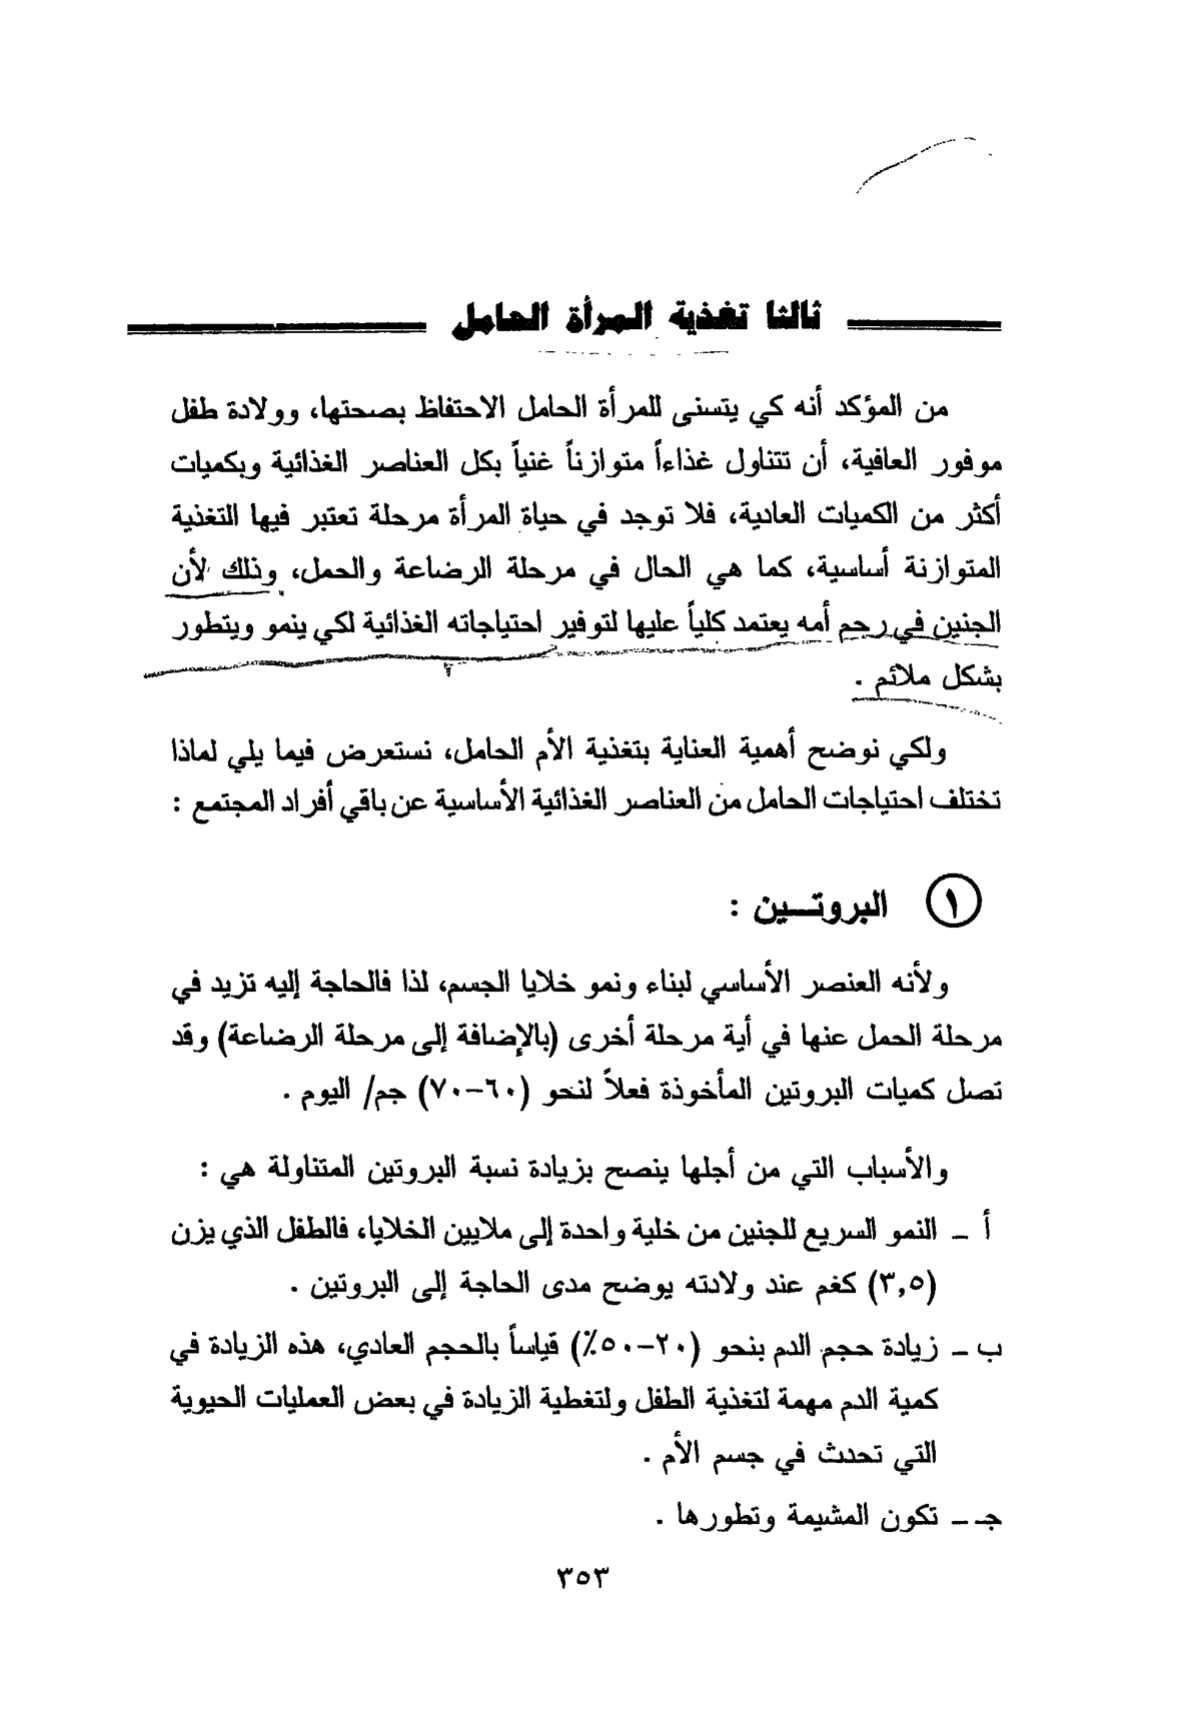 ثالثا تغذية المرأة الحامل
من المؤكد أنه كي يتسنى للمرأة الحامل الاحتفاظ بصحتها، وولادة طفل
موفور العافية، أن تتناول غذاءاً متوازناً غنياً بكل العناصر الغذائية وبكميات
أكثر من الكميات العادية، فلا توجد في حياة المرأة مرحلة تعتبر فيها التغذية
المتوازنة أساسية، كما هي الحال في مرحلة الرضاعة والحمل، وذلك لأن
الجنين في رحم أمه يعتمد كلياً عليها لتوفير احتياجاته الغذائية لكي ينمو ويتطور
بشكل ملائم .
ولكي نوضح أهمية العناية بتغذية الأم الحامل، نستعرض فيما يلي لماذا
تختلف احتياجات الحامل من العناصر الغذائية الأساسية عن باقي أفراد المجتمع :
١ البروتــين :
ولأنه العنصر الأساسي لبناء ونمو خلايا الجسم، لذا فالحاجة إليه تزيد في
مرحلة الحمل عنها في أية مرحلة أخرى (بالإضافة إلى مرحلة الرضاعة) وقد
تصل كميات البروتين المأخوذة فعلاً لنحو (٦٠-٧٠) جم/ اليوم .
والأسباب التي من أجلها ينصح بزيادة نسبة البروتين المتناولة هي :
أ – النمو السريع للجنين من خلية واحدة إلى ملايين الخلايا، فالطفل الذي يزن
(٣,٥) كغم عند ولادته يوضح مدى الحاجة إلى البروتين .
ب – زيادة حجم الدم بنحو (٢٠-٥٠٪) قياساً بالحجم العادي، هذه الزيادة في
كمية الدم مهمة لتغذية الطفل ولتغطية الزيادة في بعض العمليات الحيوية
التي تحدث في جسم الأم .
جـ – تكون المشيمة وتطورها .
٣٥٣